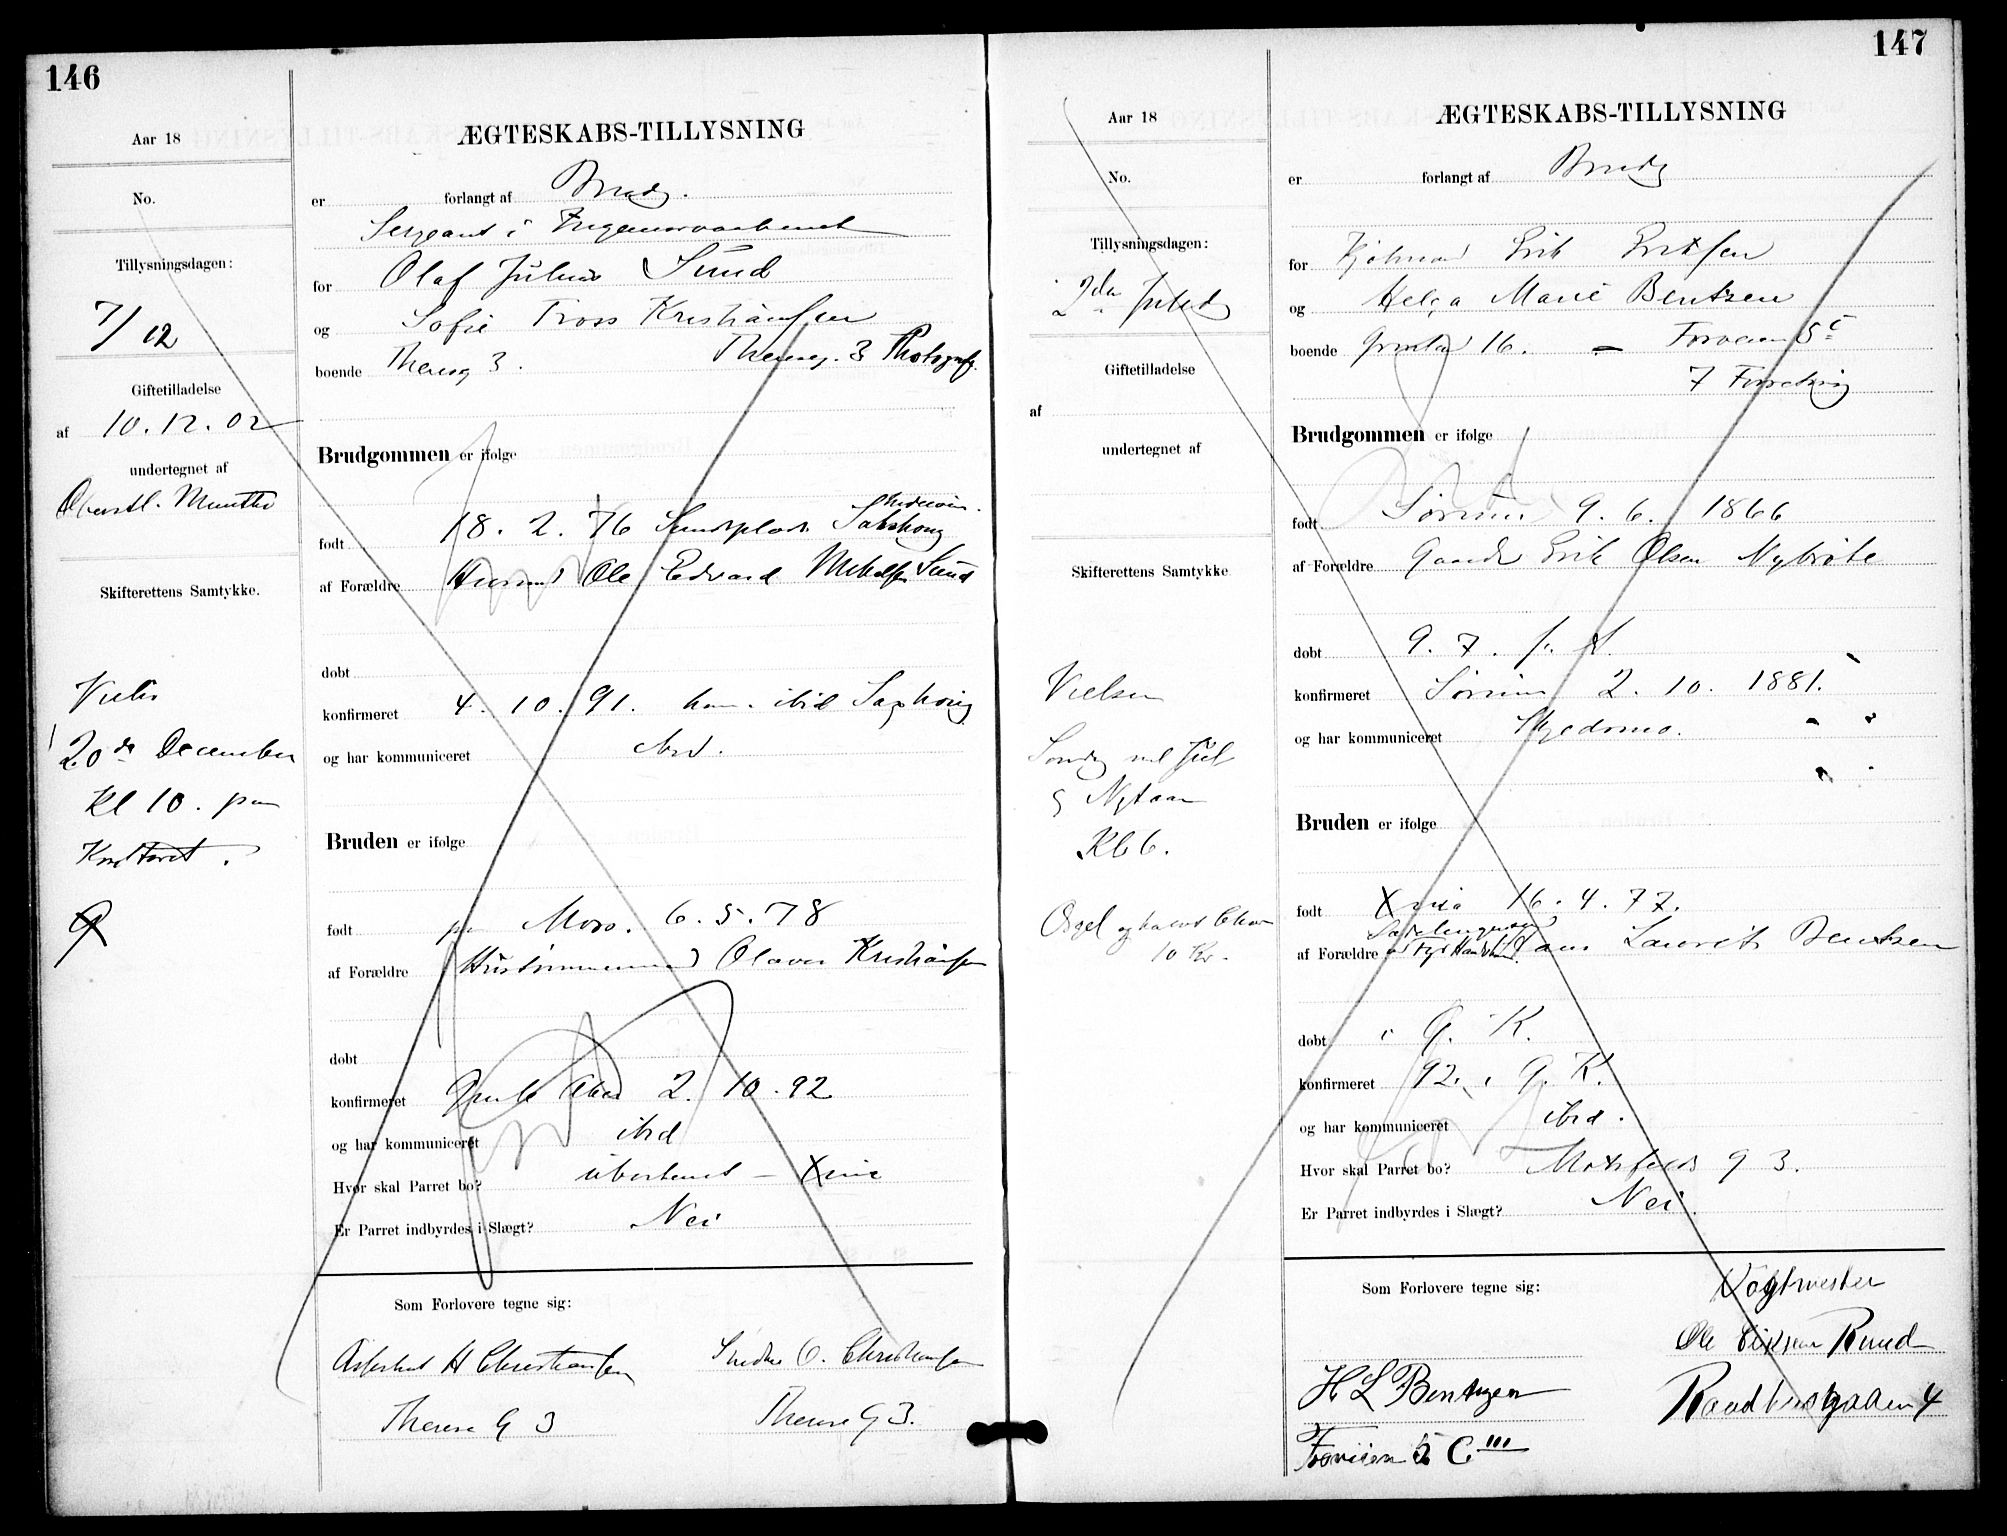 146
Aar 18
No.
Tillysningsdagen:
7/12
Giftetilladelse
af 10.12.02
undertegnet af
Oberstl. Munthe
Skifterettens Samtykke.
Vielse
20de December
Kl 10. paa
Kontoret.
ÆGTESKABS-TILLYSNING
er forlangt af Brudg.
Sergeant i
for Olaf Julius Sund
og Sofie Tross Kristiansen
boende Thereseg 3. Thereseg. 3 Photograf.
Brudgommen er ifølge
født 18. 2. 76
af Forældre Husmand Ole Edvard Sund
døbt
konfirmeret 4. 10. 91. ibid
og har kommuniceret ibid.
Bruden er ifølge
født paa Moss. 6. 5. 78
af Forældre Olaves Kristiansen
døbt
konfirmeret Gamle Aker 2. 10. 92
og har kommuniceret ibid
Hvor skal Parret bo? ubestemt – Xnia
Er Parret indbyrdes i Slægt? Nei
Som Forlovere tegne sig:
H Christiansen O. Christiansen
Therese G 3 Therese G 3.
147
Aar 18
No.
Tillysningsdagen:
2den Juledag
Giftetilladelse
af
undertegnet af
Skifterettens Samtykke
Vielsen
Søndag mel Jul
og Nytaar
Kl 6.
Orgel og halvt Chor
10 Kr.
ÆGTESKABS-TILLYSNING
er forlangt af Brudg
for Erik Eriksen
og Helga Marie Bentzen
boende 16. – 5c
Brudgommen er ifølge
født Sørum 9. 6. 1866
af Forældre Gaardb Erik Olsen Nybråte
døbt 9. 7. s. A.
konfirmeret Sørum 2. 10. 1881.
og har kommuniceret Skedsmo.
Bruden er ifølge
født Xnia 16. 4. 77.
af Forældre Hans Laurits Bentzen
døbt i G. K.
konfirmeret 92. i G. K.
og har kommuniceret ibid.
Hvor skal Parret bo? Motzfeldts g 3.
Er Parret indbyrdes i Slægt? Nei.
Som Forlovere tegne sig:
Vagtmester
Ole Eriksen Ruud
H L Bentzen
Raadhusgaden 4
5 C III